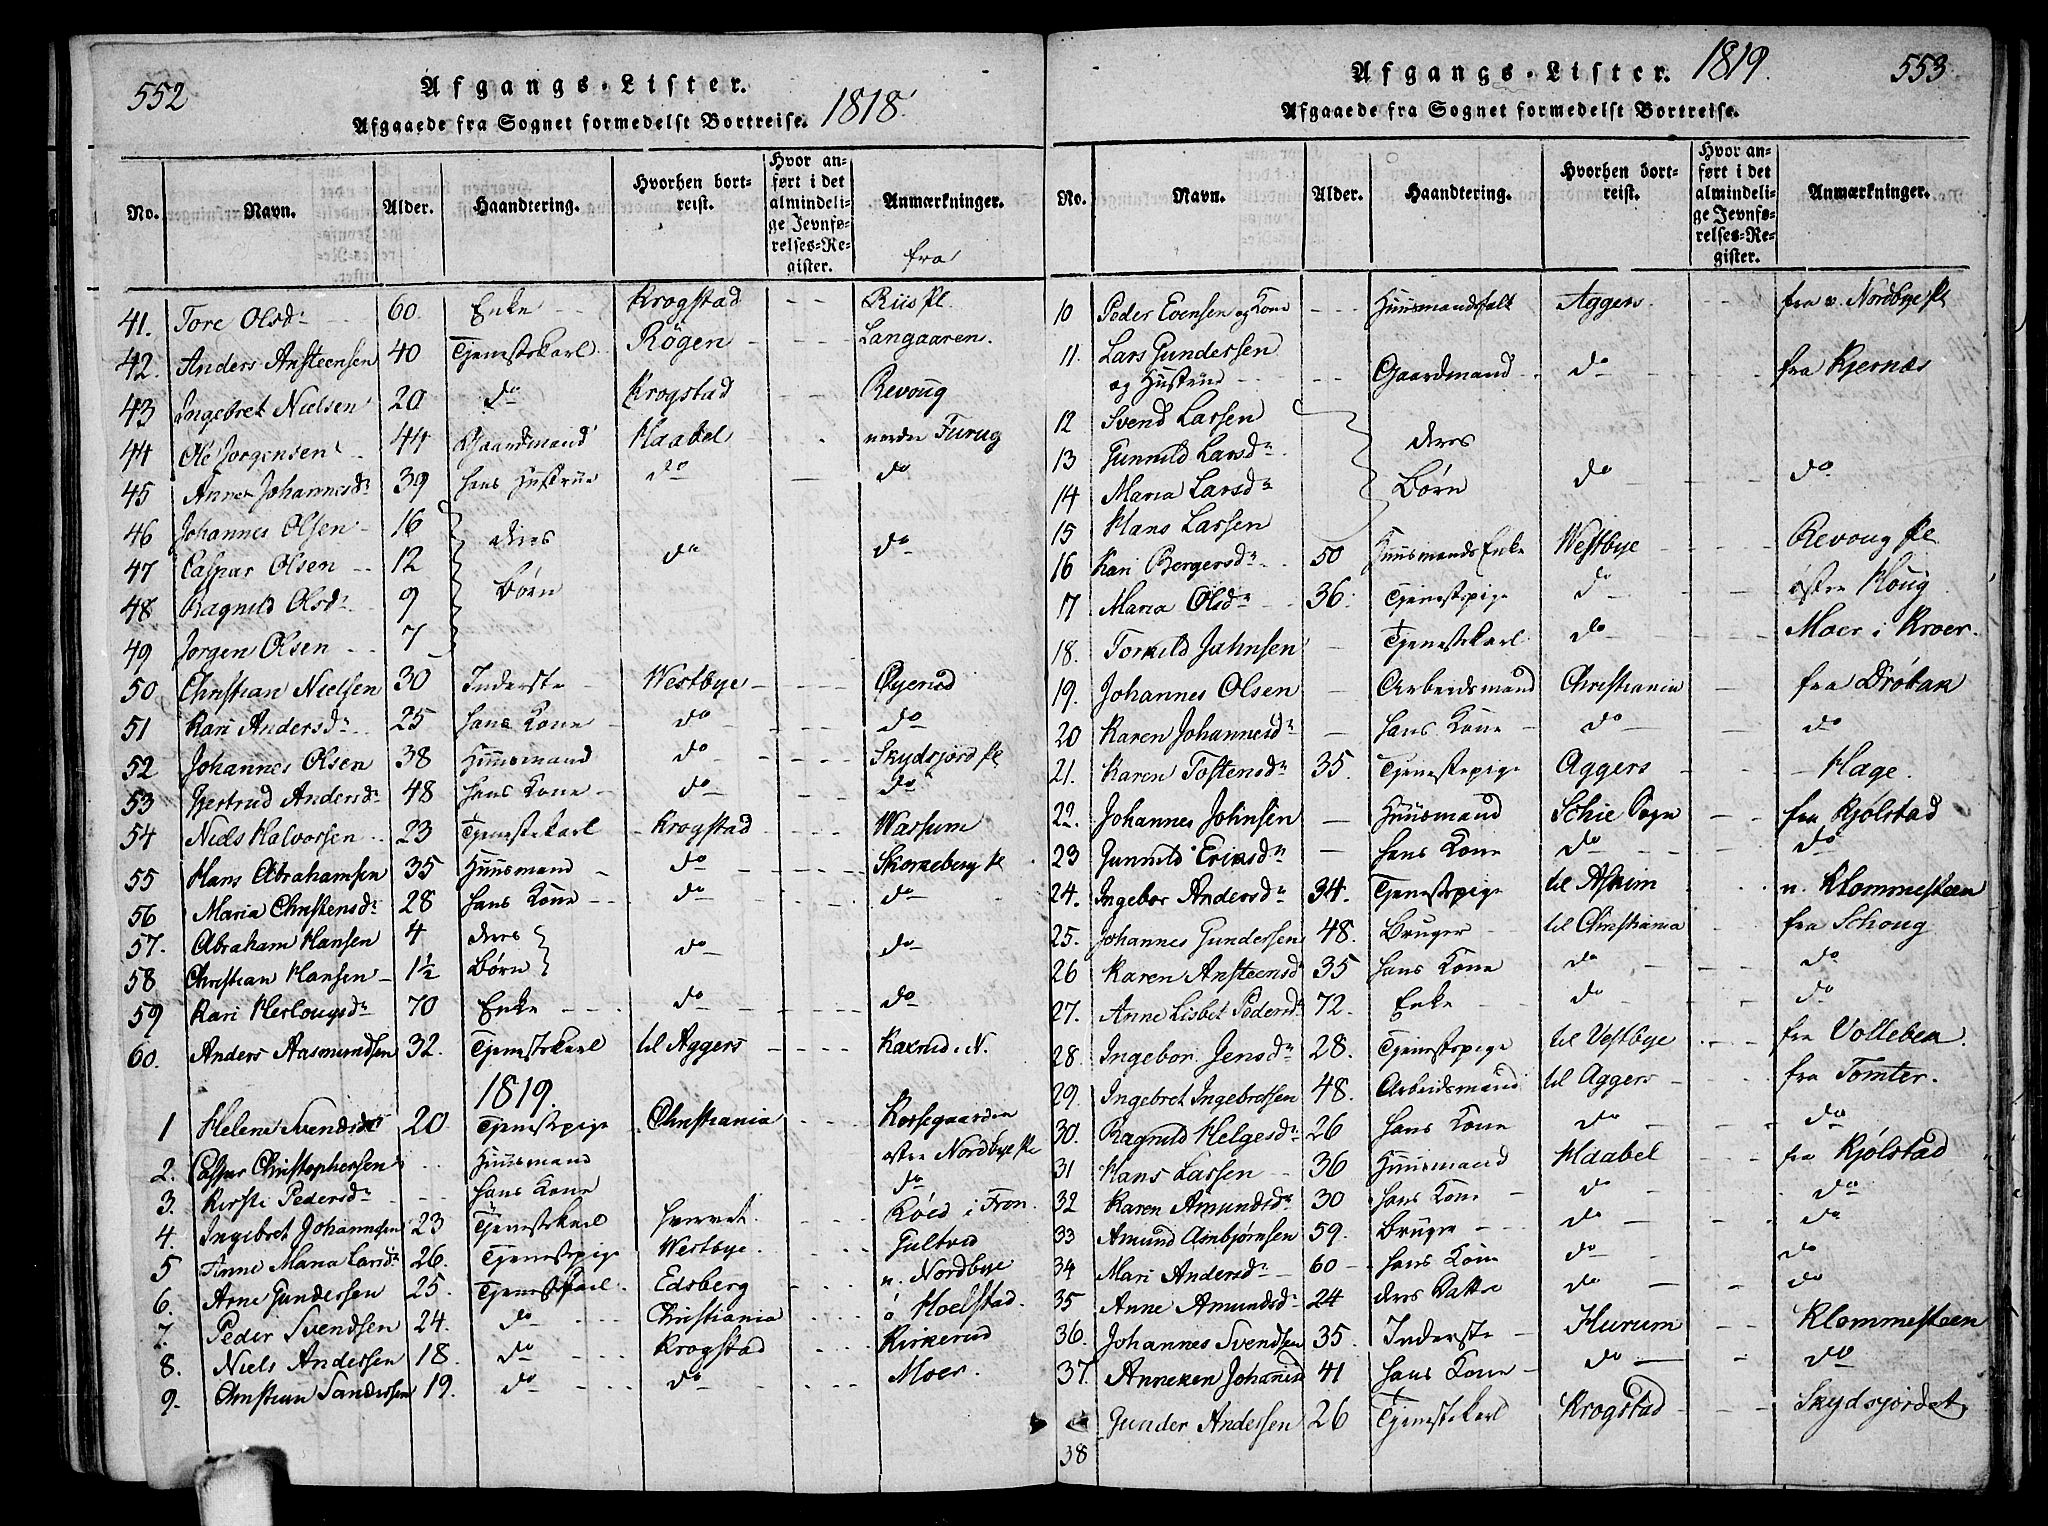 552
Afgangs-Lister.
Afgaaede fra Sognet formedelst Bortreise. 1818.
No. Navn. Alder. Haandtering. Hvorhen bortreist. Hvor anført i det almindelige Jevnførelses-Register. Anmærkninger.
fra
41. Tore Olsdr 60. Enke Krogstad Riis Pl.
42. Anders Ansteensen 40 Tjenestekarl. Røgen Langaaren.
43 Ingebret Nielsen 20 do Krogstad Revoug
44 Ole Jørgensen 44 Gaardmand Haabel nordre Furug
45 Anne Johannesdr 39 hans Hustrue do do
46 Johannes Olsen 16 deres
47 Caspar Olsen 12 do do
48 Ragnild Olsdr 9 Børn
49 Jørgen Olsen 7
50 Christian Nielsen 30 Inderste Westbye Øyerud
51 Kari Andersdr 25 hans Kone do do
52 Johannes Olsen 38 Huusmand do Skydsjord Pl
53 Gertrud Andersdr 48 hans Kone do do
54 Niels Halvorsen 23 Tjenestekarl Krogstad Warsum
55 Hans Abrahamsen 35 Huusmand do Skorkeberg Pl
56 Maria Christensdr 28 hans Kone do do
57. Abraham Hansen 4 deres do do
58 Christian Hansen 1½ Børn
59 Kari Herlougsdr 70 Enke do do
60. Anders Aasmundsen 32. Tjenestekarl til Aggers Kaxrud i N.
1819.
1 Helene Svendsdr 20 Tjenestepige Christiania Korsegaarden
2. Casper Christophersen Huusmand østre Nordbye Pl
3. Kirsti Pedersdr hans Kone do
4. Ingebret Johannesen 23 Tjenestekarl Røed i Fron
5 Anne Maria Larsdr 26. Tjenestepige Westbye.
6. Arne Gundersen 25. Tjenestekarl. Edsberg n. Nordbye
7. Peder Svendsen 24. do Christiania ø Hoelstad.
8. Niels Andersen 18. do Krogstad Kirkerud
9. Christian Sandersen 19. do do Moer.
Afgangs-Lister. 1819. 553
Afgaaede fra Sognet formedelst Bortreise.
No. Navn. Alder. Haandtering. Hvorhen bortreist. Hvor anført i det almindelige Jevnførelses-Register. Anmærkninger.
10 Peder Evensen og Kone Huusmandsfolk Aggers. fra v. Nordbye Pl
11. Lars Gundersen
og Hustrue Gaardmand do fra Kjernæs
12 Svend Larsen
13 Gunnild Larsdr deres
14 Maria Larsdr Børn do do
15 Hans Larsen
16 Kari Borgersdr 50 Huusmands Enke Westbye Revoug Pl
17 Maria Olsdr 36. Tjenestepige do østre Houg
18. Torkild Jahnsen Tjenestekarl do Moer i Kroer.
19. Johannes Olsen Arbeidsmand Christiania fra Drøbak
20 Karen Johannesdr hans Kone do do
21. Karen Tostensdr 35. Tjenestepige Aggers Hage.
22. Johannes Johnsen Huusmand Schie Sogn fra Kjølstad
23 Gunnild Eriksdr hans Kone do do
24. Ingebor Andersdr 34. Tjenestepige til Askim n. Klommesteen
25. Johannes Gundersen 48. Bruger til Christiania fra Schoug
26 Karen Ansteensdr 35 hans Kone do do
27. Anne Lisbet Pedersdr 72. Enke do do
28. Ingebor. Jensdr 28. Tjenestepige til Vestbye fra Vollebek.
29. Ingebret Ingebretsen 48. Arbeidsmand til Aggers fra Tomter.
30. Ragnild Helgesdr 26 hans Kone do do
31 Hans Larsen 36 Huusmand Haabel fra Kjølstad
32 Karen Amundsdr 30 hans Kone do do
33 Amund Arnbjørnsen 59. Bruger do do
34 Mari Andersdr 60 hans Kone do do
35 Anne Amundsdr 24 deres Datter do do
36. Johannes Svendsen 35. Inderste Hurum Klommesteen
37. Anneken Johansd 41 hans Kone do do
38 Gunder Andersen 26 Tjenestekarl Krogstad Skydsjordet